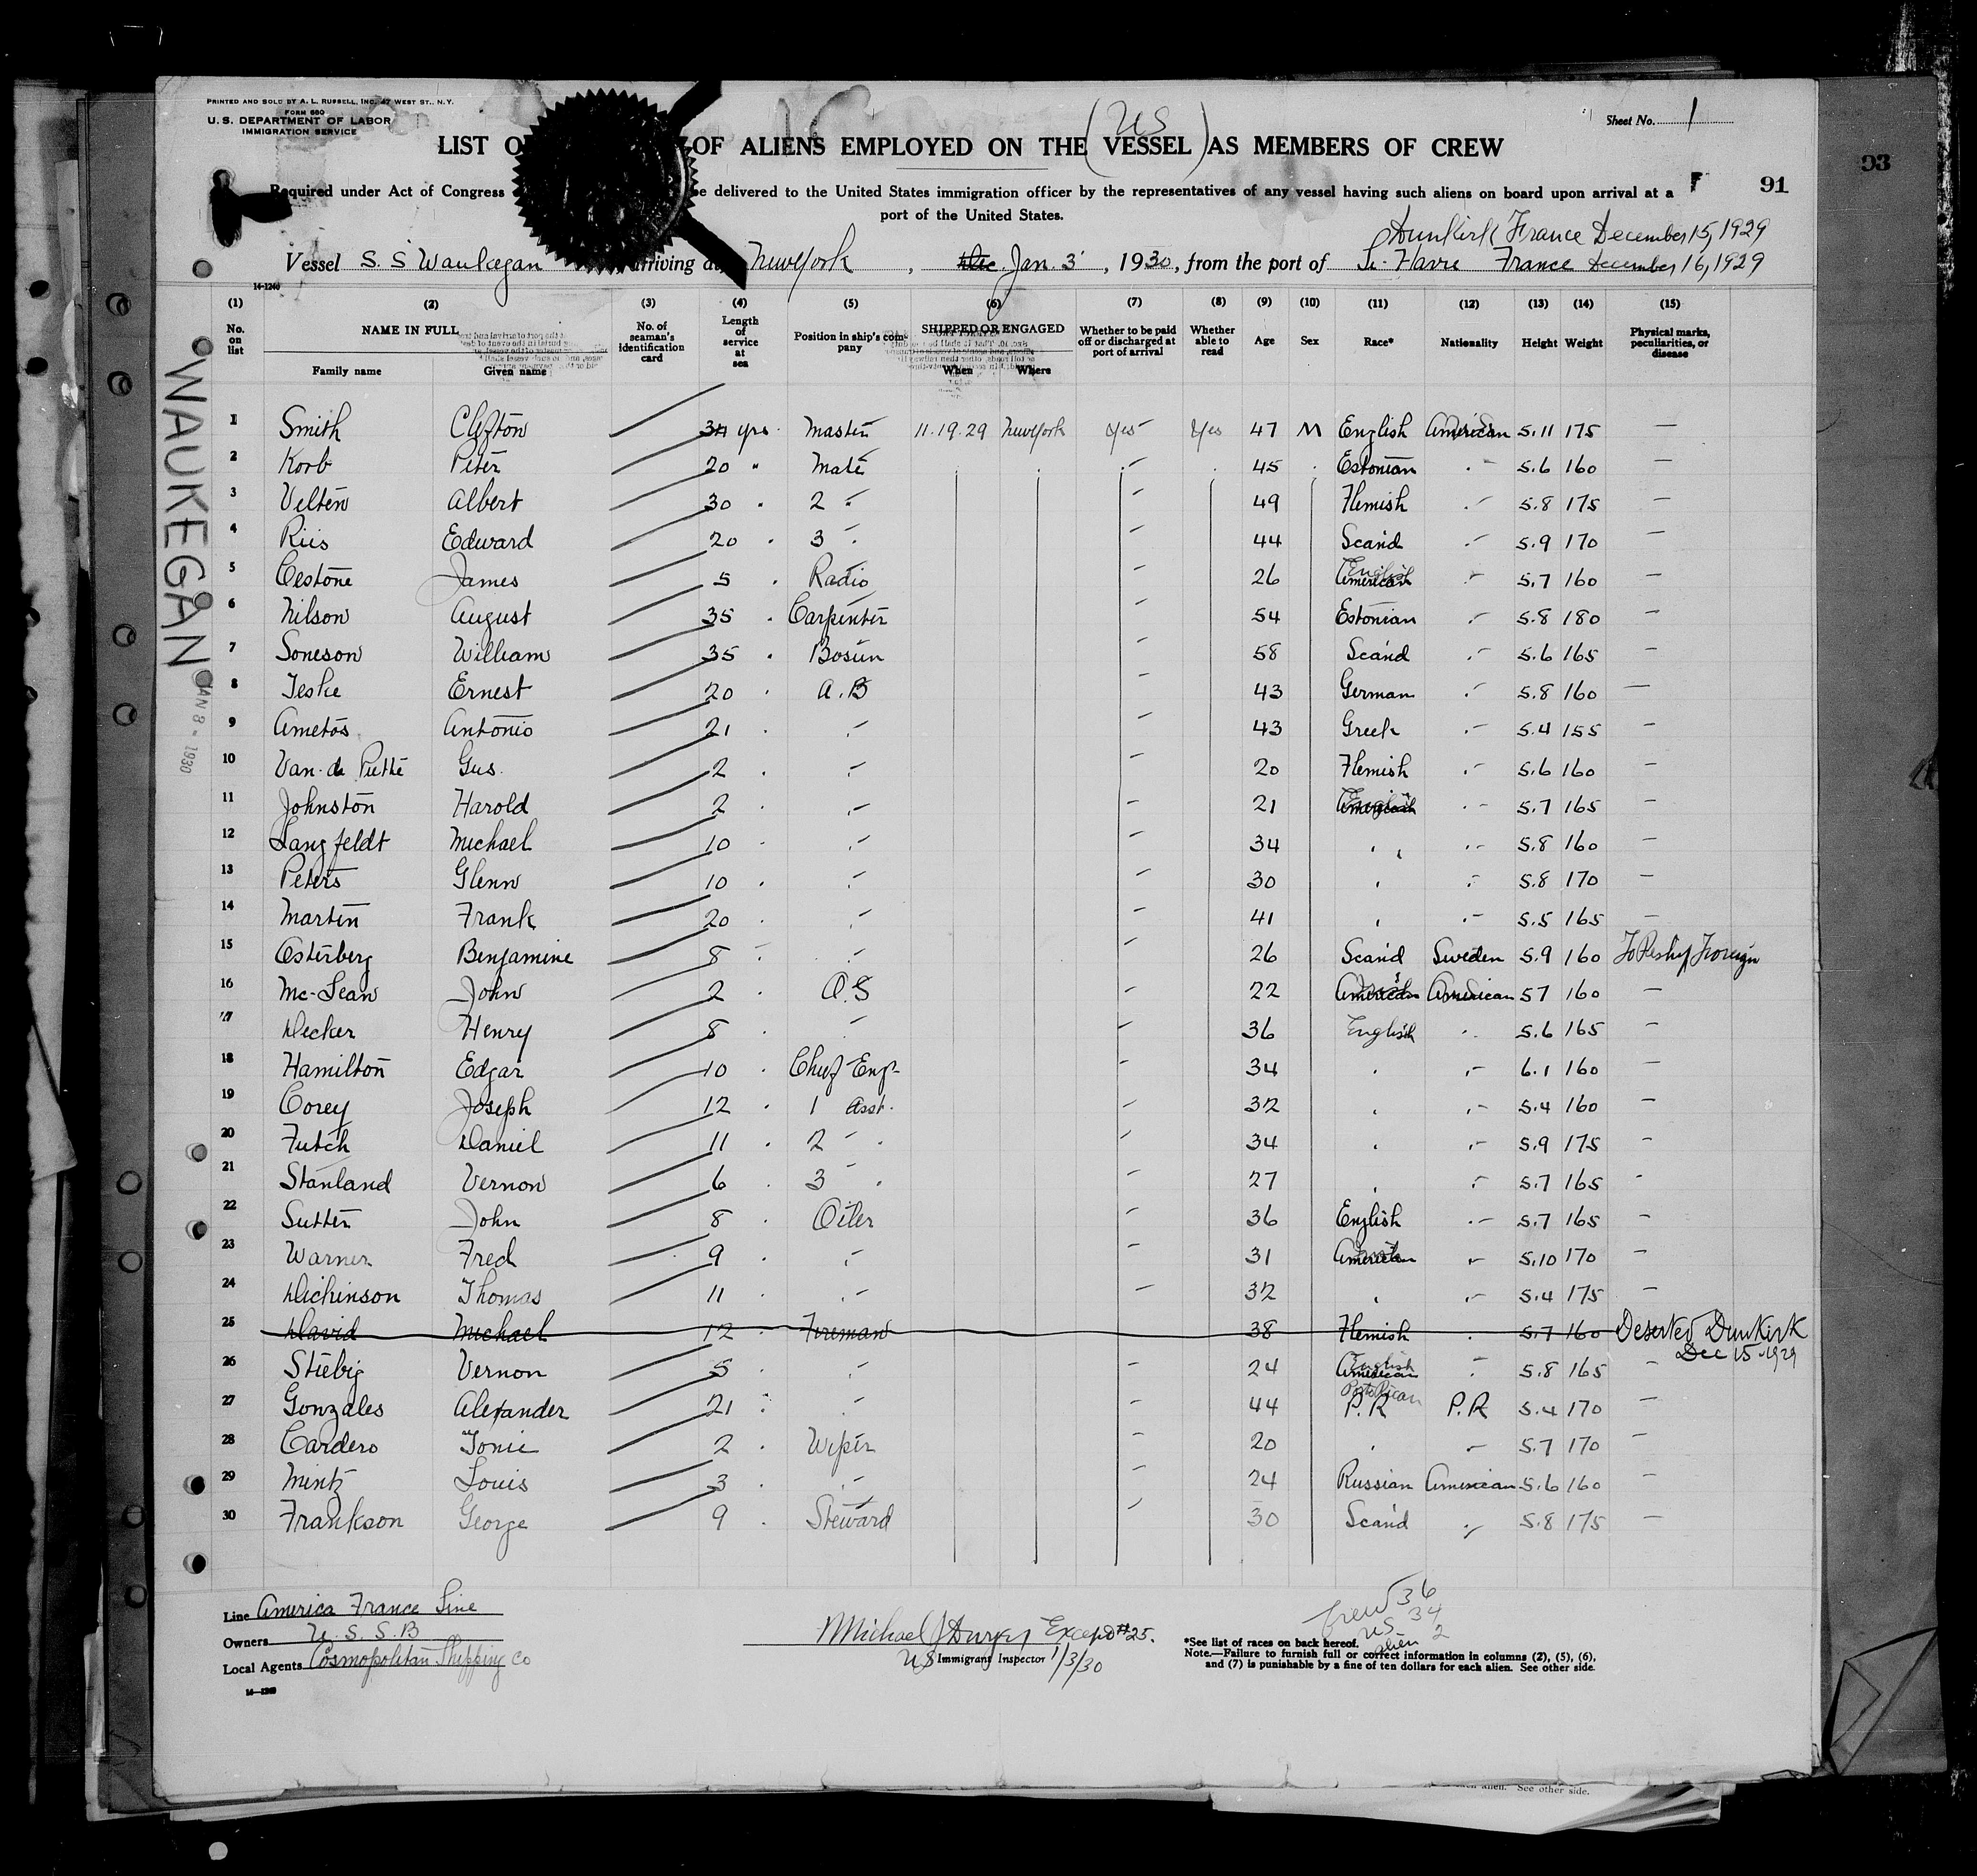 PRINTED AND SOLD BY A. L. RUSSELL, INC. 47 WEST ST., N. Y.
FORM 680
U. S. DEPARTMENT OF LABOR
IMMIGRATION SERVICE
Sheet No. 1
(US)
LIST O OF ALIENS EMPLOYED ON THE VESSEL AS MEMBERS OF CREW
Required under Act of Congress e delivered to the United States immigration officer by the representatives of any vessel having such aliens on board upon arrival at a
port of the United States.
91
93
Dunkirk France December 15, 1929
Vessel S. S Waukegan arriving at New York, Jan. 3, 1930, from the port of Le Havre France December 16, 1929
14-1240
(1) (2) (3) (4) (5) (6) (7) (8) (9) (10) (11) (12) (13) (14) (15)
No. on list NAME IN FULL Family name Given name No. of seaman's identification card Length of service at sea Position in ship's company SHIPPED OR ENGAGED When Where Whether to be paid off or discharged at port of arrival Whether able to read Age Sex Race* Nationality Height Weight Physical marks, peculiarities, or disease
WAUKEGAN
JAN 8 - 1930
1 Smith Clifton 34 yrs. Master 11.19.29 New York Yes Yes 47 M English American 5.11 175 —
2 Korb Peter 20 " Mate 45 Estonian 5.6 160 —
3 Velten Albert 30 2 " 49 Flemish 5.8 175 —
4 Riis Edward 20 3 " 44 Scand 5.9 170 —
5 Cestone James 5 Radio 26 American English 5.7 160 —
6 Nilson August 35 Carpenter 54 Estonian 5.8 180 —
7 Soneson William 35 Bosun 58 Scand 5.6 165 —
8 Teske Ernest 20 A.B 43 German 5.8 160 —
9 Ametos Antonio 21 " 43 Greek 5.4 155 —
10 Van de Putte Gus. 2 " 20 Flemish 5.6 160 —
11 Johnston Harold 2 " 21 American English 5.7 165 —
12 Langfeldt Michael 10 " 34 " 5.8 160 —
13 Peters Glenn 10 " 30 " 5.8 170 —
14 Martin Frank 20 " 41 " 5.5 165 —
15 Osterberg Benjamine 8 " 26 Scand Sweden 5.9 160 To Reship Foreign
16 Mc-Lean John 2 O.S 22 American American 5 7 160 —
17 Decker Henry 8 " 36 English " 5.6 165 —
18 Hamilton Edgar 10 Chief Eng. 34 " 6.1 160 —
19 Corey Joseph 12 1 Asst. 32 " 5.4 160 —
20 Futch Daniel 11 2 " 34 " 5.9 175 —
21 Stanland Vernon 6 3 " 27 " 5.7 165 -
22 Sutter John 8 Oiler 36 English 5.7 165 —
23 Warner Fred 9 " 31 American 5.10 170 —
24 Dickinson Thomas 11 " 32 " 5.4 175 —
25 David Michael 12 Fireman 38 Flemish 5.7 160 Deserted Dunkirk
Dec 15-1929
26 Stiebig Vernon 5 " 24 American English 5.8 165 —
27 Gonzales Alexander 21 " 44 P.R Porto Rican P.R 5.4 170 —
28 Cardero Tonie 2 Wiper 20 " 5.7 170 —
29 Mintz Louis 3 " 24 Russian American 5.6 160 —
30 Frankson George 9 Steward 30 Scand " 5.8 175 —
Line America France Line
Owners U. S. S. B
Local Agents Cosmopolitan Shipping Co
14—1240
Except #25.
US Immigrant Inspector 1/3/30
Crew 36
US 34
alien 2
*See list of races on back hereof.
Note.—Failure to furnish full or correct information in columns (2), (5), (6),
and (7) is punishable by a fine of ten dollars for each alien. See other side.
alien. See other side.